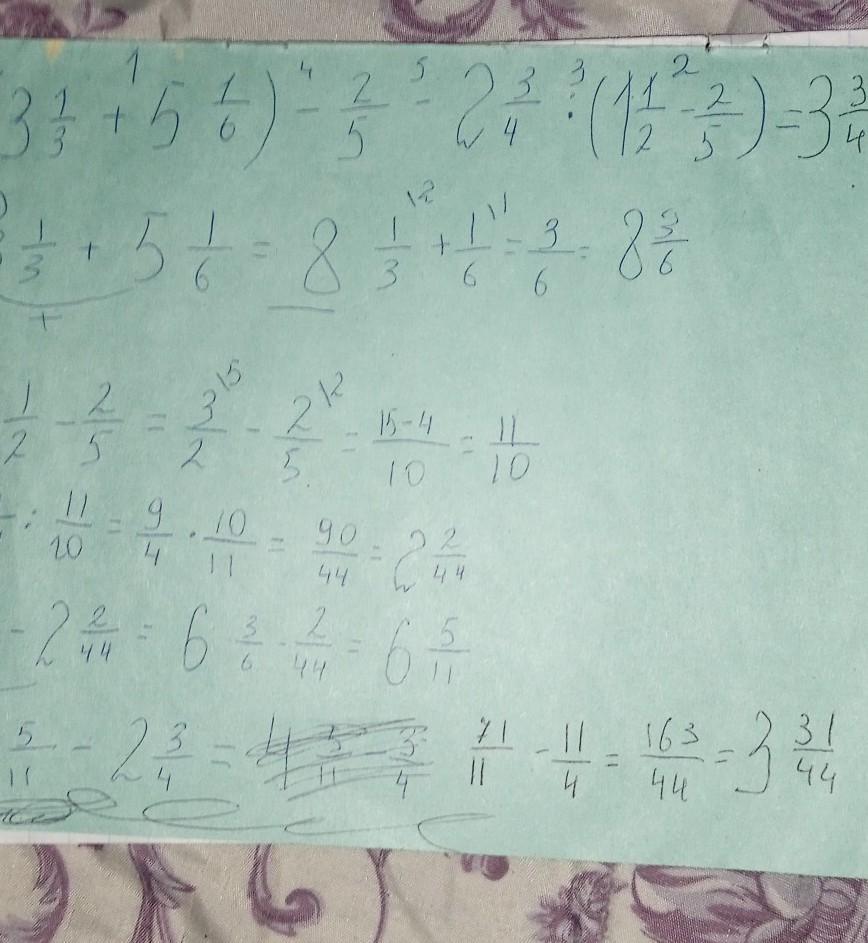 3 1/3 + 5 1/6) - 2/5 - 2 3/4 : (1 1/2 - 2/5) = 3 3/4
1/3 + 5 1/6 = 8 1/3 + 1/6 = 3/6 = 8 3/6
1/2 - 2/5 = 3/2 - 2/5 = 15-4/10 = 11/10
: 11/10 = 9/4 · 10/11 = 90/44 = 2 2/44
- 2 2/44 = 6 3/6 - 2/44 = 6 5/11
5/11 - 2 3/4 = 71/11 - 11/4 = 163/44 = 3 31/44